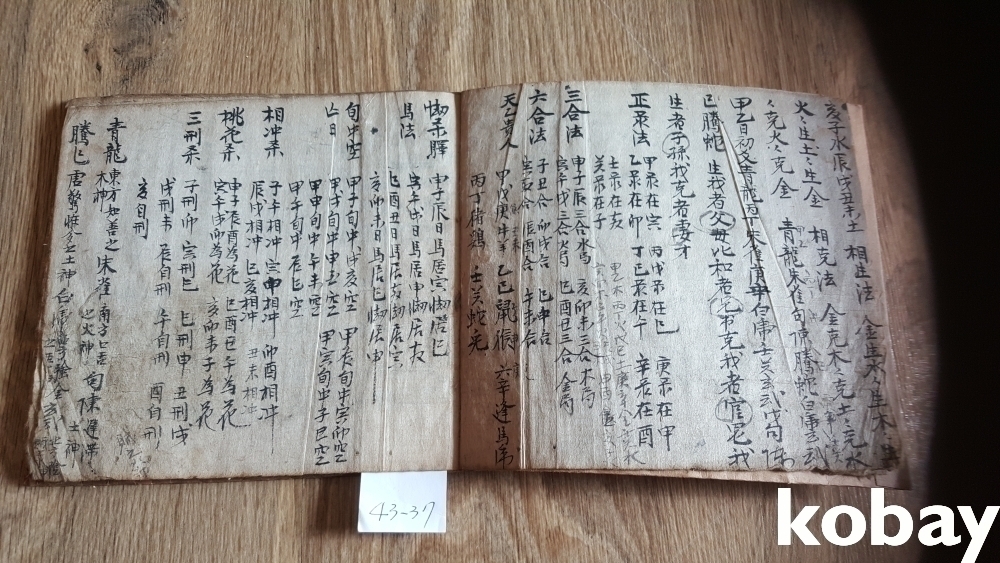 亥子水辰戌丑未土 相生法 金生水々生木
火々生土々生金 相克法 金克木々克土々克水
々克火々克金 青龍朱雀句陳騰蛇白虎玄武
甲乙日初爻青龍丙丁朱雀 白虎壬癸玄武
己騰蛇 生我者父母比和者兄弟克我者官鬼我
生者子孫我克者妻才
正祿法 甲祿在寅 丙戊祿在巳 庚祿在申
乙祿在卯 丁己祿在午 辛祿在酉
壬祿在亥
癸祿在子
三合法 申子辰三合水局 亥卯未三合木局
寅午戌三合火局 巳酉丑三合金局
六合法 子丑合 卯戌合 巳申合
寅亥合 辰酉合 午未合
天乙貴人 甲戊庚牛羊 乙己鼠猴 六辛逢馬虎
丙丁猪鷄 壬癸蛇兎
劫杀驛 申子辰日馬居寅劫居巳
馬法 寅午戌日馬居申劫居亥
巳酉丑日馬居亥劫居寅
亥卯未日馬居巳劫居申
旬中空 甲子旬中戌亥空 甲辰旬中寅卯空
亡日 甲戌旬中申酉空 甲寅旬中子丑空
甲申旬中午未空
甲午旬中辰巳空
相冲杀 子午相冲 寅申相冲 卯酉相冲
辰戌相冲 巳亥相冲 丑未相冲
桃花杀 申子辰酉為花 巳酉丑午為花
寅午戌卯為花 亥卯未子為花
三刑杀 子刑卯 寅刑巳 巳刑申 丑刑戌
戌刑未 辰自刑 午自刑 酉自刑
亥自刑
青龍 東方 木神 朱雀 南方 火神 句陳 土神
騰巳 土神
43-37
kobay